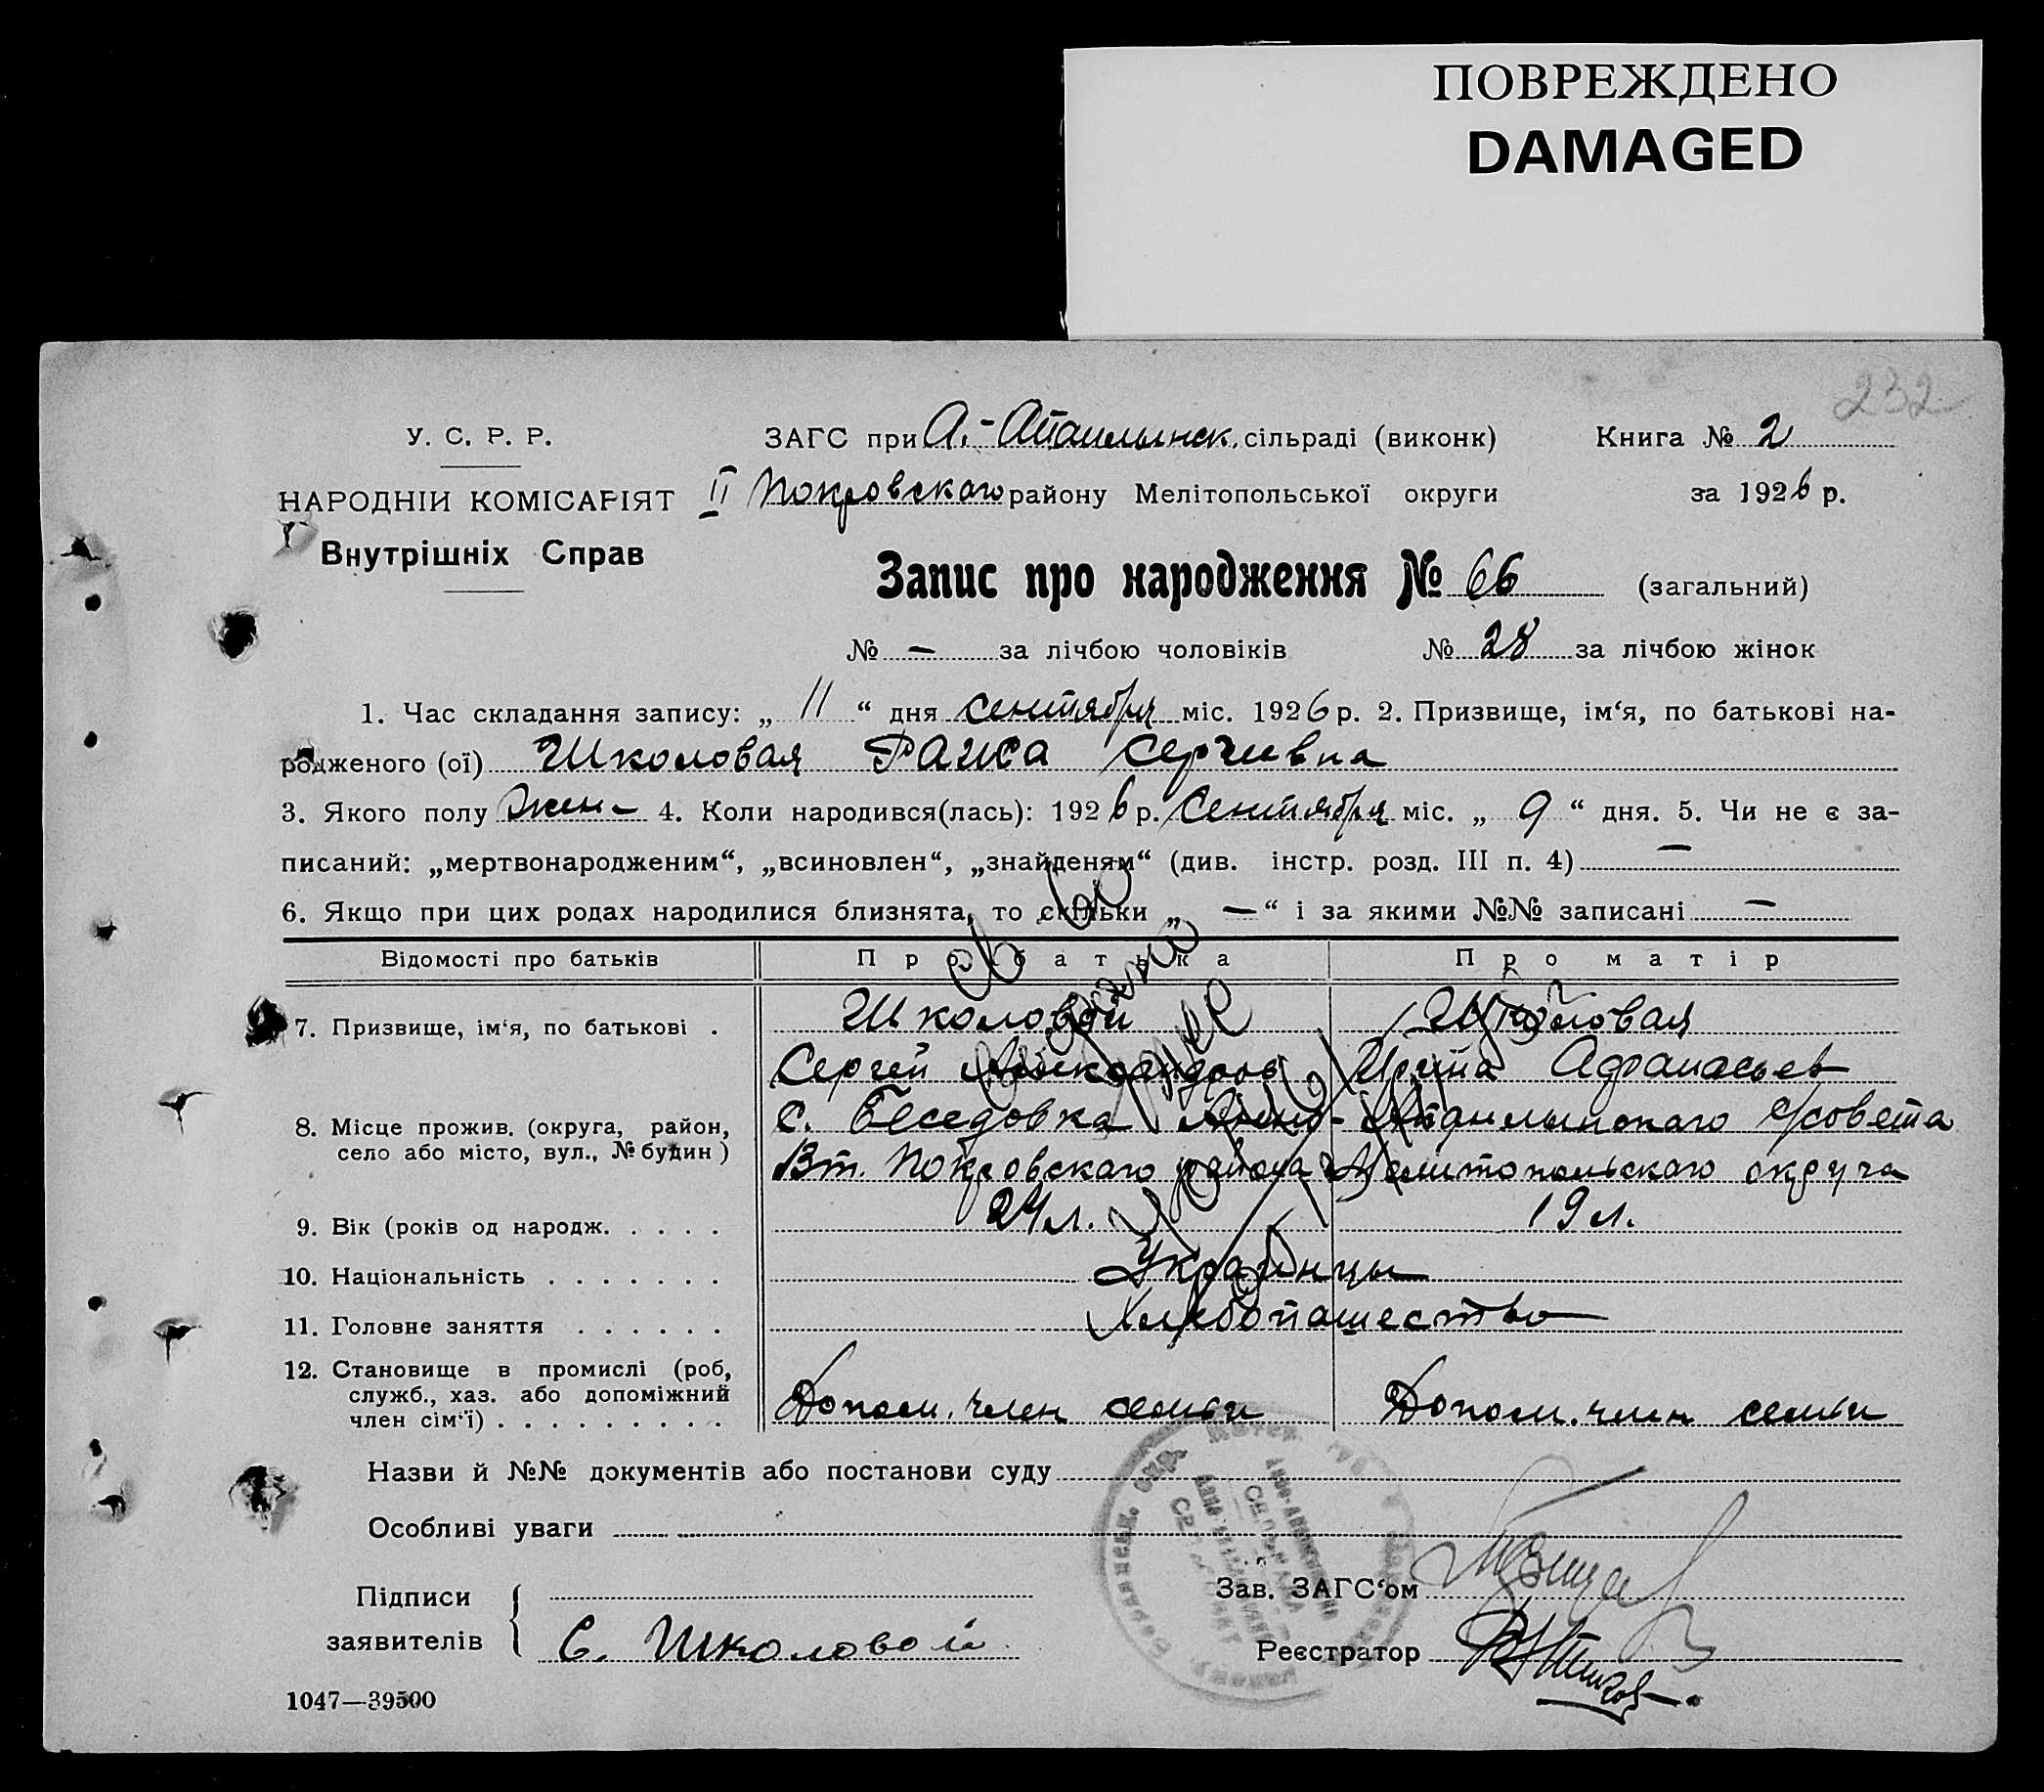 ПОВРЕЖДЕНО
DAMAGED
232
У. С. Р. Р.
НАРОДНІИ КОМІСАРІЯТ
Внутрішніх Справ
ЗАГС при А.-Апанлынск. сільраді (виконк)
Книга № 2
II Покровскаго району Мелітопольської округи
за 1926 р.
Запис про народження № 66 (загальний)
№ — за лічбою чоловіків № 28 за лічбою жінок
1. Час складання запису: „ 11 “ дня сентября міс. 1926 р. 2. Призвище, ім‘я, по батькові на-
родженого (ої) Школовая Раиса Сергиевна
3. Якого полу жен- 4. Коли народився(лась): 1926 р. Сентября міс. „ 9 “ дня. 5. Чи не є за-
писаний: „мертвонародженим“, „всиновлен“, „знайденям“ (див. інстр. розд. III п. 4) —
6. Якщо при цих родах народилися близнята, то скільки „ — “ і за якими №№ записані —
Відомості про батьків Про батька Про матір
7. Призвище, ім‘я, по батькові . Школовой Школовая
Сергей Александров Ирина Афанасьев
8. Місце прожив. (округа, район,
село або місто, вул., № будин)
с. Беседовка Анно-Апанлынскаго с/совета
Вт. Покровскаго района Мелитопольскаго округа
9. Вік (років од народж. . . . . 24 л. 19 л.
10. Національність . . . . . . . Украинцы
11. Головне заняття . . . . . . Хлебопашество
12. Становище в промислі (роб,
служб., хаз. або допоміжний
член сім‘ї) . . . . . . . . .
Допом. член семьи Допом. член семьи
Назви й №№ документів або постанови суду
Особливі уваги
Підписи
заявителів
С. Школовой
Зав. ЗАГС‘ом
Реєстратор
1047—39500